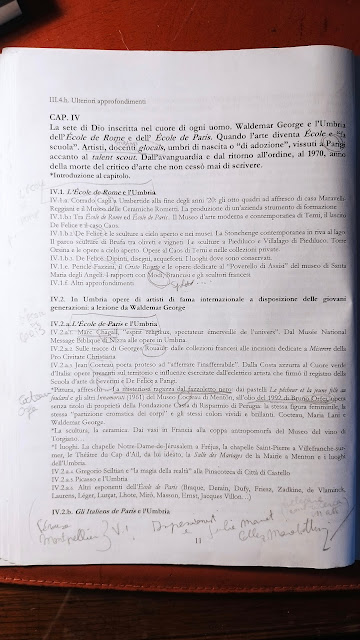 III.4.h. Ulteriori approfondimenti
CAP. IV
La sete di Dio inscritta nel cuore di ogni uomo. Waldemar George e l'Umbria
dell'École de Rome e dell' École de Paris. Quando l'arte diventa École e "fa
scuola". Artisti, docenti glocals, umbri di nascita o "di adozione", vissuti a Parigi
accanto al talent scout. Dall'avanguardia e dal ritorno all'ordine, al 1970, anno
della morte del critico d'arte che non cessò mai di scrivere.
*Introduzione al capitolo.
IV.1. L'École de Rome e l'Umbria
IV.1.a. Corrado Cagli a Umbertide alla fine degli anni '20: gli otto quadri ad affresco di casa Mavarelli-
Reggiani e il Museo delle Ceramiche Rometti. La produzione di un'azienda strumento di formazione
IV.1.b.: Tra École de Rome ed École de Paris. Il Museo d'arte moderna e contemporanea di Terni, il lascito
De Felice e il caso Caos.
IV.1.b.1: De Felice e le sculture a cielo aperto e nei musei. La Stonehenge contemporanea in riva al lago.
Il parco sculture di Brufa tra oliveti e vigneti. Le sculture a Piediluco e Villalago di Piediluco. Torre
Orsina e le opere a cielo aperto. Opere al Caos di Terni e nelle collezioni private.
IV.1.b.2. De Felice. Dipinti, disegni, acqueforti. I luoghi dove sono conservati.
IV.1.c. Pericle Fazzini, il Cristo Risorto e le opere dedicate al "Poverello di Assisi" del museo di Santa
Maria degli Angeli. I rapporti con Mirò, Brancusi e gli scultori francesi
IV.1.f. Altri approfondimenti
IV.2. In Umbria opere di artisti di fama internazionale a disposizione delle giovani
generazioni: a lezione da Waldemar George
IV.2.a. L'École de Paris e l'Umbria
IV.2.a.1. Marc Chagall, "esprit religieux, spectateur émerveillé de l'univers". Dal Musée National
Message Biblique di Nizza alle opere in Umbria.
IV.2.a.2. Sulle tracce di Georges Rouault: dalle collezioni francesi alle incisioni dedicate a Miserere della
Pro Civitate Christiana
IV.2.a.3. Jean Cocteau poeta proteso ad "afferrare l'inafferrabile". Dalla Costa azzurra al Cuore verde
d'Italia: opere presenti sul territorio e influenze esercitate dall'eclettico artista che firmò il registro della
Scuola d'arte di Severini et De Felice a Parigi.
*Pittura, affreschi: La misteriosa ragazza dal fazzoletto nero: dai pastelli La pêcheur et la jeune fille au
foulard e gli altri Innamorati (1961) del Museo Cocteau di Menton, all'olio del 1992 di Bruno Orfei, opera
senza titolo di proprietà della Fondazione Cassa di Risparmio di Perugia: la stessa figura femminile, la
stessa "partizione cromatica dei corpi" e gli stessi colori vividi e brillanti. Cocteau, Maria Lani e
Waldemar George.
*La scultura, la ceramica. Dai vasi in Francia alla coppa antropomorfa del Museo del vino di
Torgiano....
*I luoghi. La chapelle Notre-Dame-de-Jérusalem a Fréjus, la chapelle Saint-Pierre a Villefranche-sur-
mer, le Théâtre du Cap d'Ail, da lui ideato, la Salle des Mariages de la Mairie a Menton e i luoghi
dell'Umbria.
IV.2.a.4. Gregorio Sciltian e "la magia della realtà" alla Pinacoteca di Città di Castello
IV.2.a.5. Picasso e l'Umbria
IV.2.a.6. Altri esponenti dell'École de Paris (Braque, Derain, Dufy, Friesz, Zadkine, de Vlaminck,
Laurens, Léger, Lurçat, Lhote, Mirò, Masson, Ernst, Jacques Villon…)
IV.2.b. Gli Italiens de Paris e l'Umbria
Montpellier
11